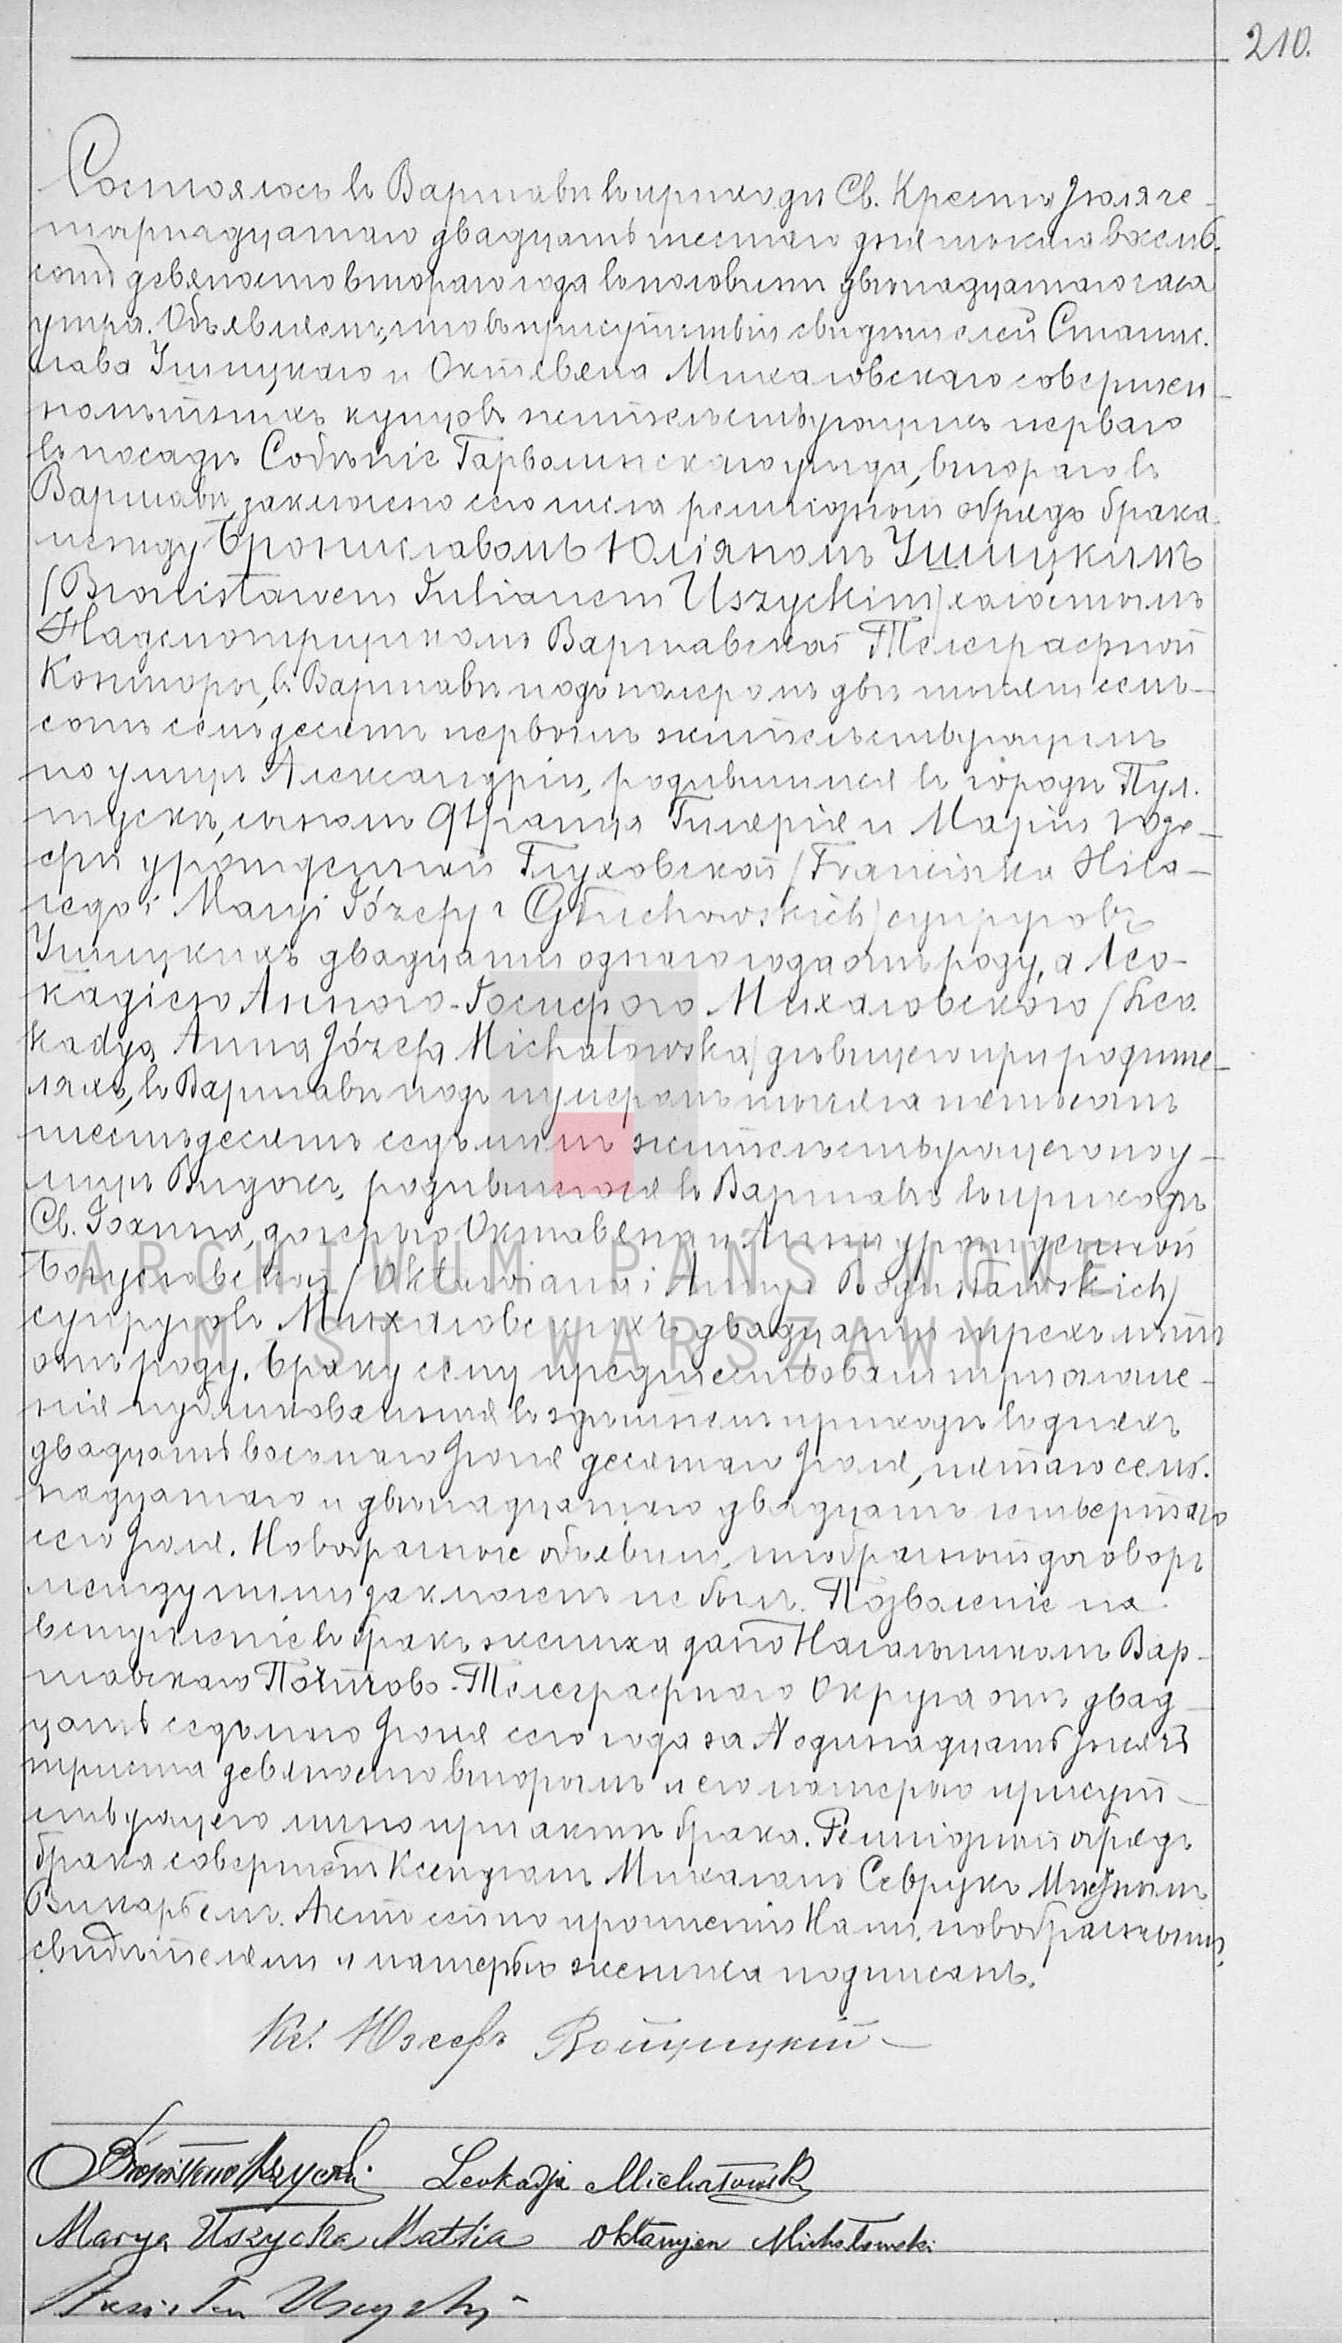 210.
Состоялось въ Варшавѣ въ приходѣ Св. Креста Іюля че-
тырнадцатаго двадцать шестаго дня тысяча восемь-
сотъ девяносто втораго года въ половинѣ двѣнадцатаго часа
утра. Объявляемъ, что въ присутствіи свидѣтелей Станис-
лава Ушицкаго и Октавіяна Михаловскаго совершен-
нолѣтнихъ купцовъ жительствующихъ перваго
въ посадѣ Собѣніе Гарволинскаго уѣзда, втораго въ
Варшавѣ, заключено сего числа религіозный обрядъ брака
между Брониславомъ Юліяномъ Ушицкимъ
(Bronisławem Julianem Uszyckim) холостымъ
Надсмотрщикомъ Варшавской Телеграфной
Конторы, въ Варшавѣ подъ номеромъ двѣ тысячи семь-
сотъ семьдесятъ первымъ жительствующимъ
по улицѣ Александріи, родившимся въ городѣ Пул-
тускѣ, сыномъ Франца Гилярія и Маріи Юзе-
фы урожденной Глуховской (Franciszka Hila-
rego i Maryi Józefy z Głuchowskich) супруговъ
Ушицкихъ двадцати одного года отъ роду, а Лео-
кадіею Анною-Іосифою Михаловскою (Leo-
kadyą Anną Józefą Michałowską) дѣвицею при родите-
ляхъ, въ Варшавѣ подъ нумеромъ тысяча пятьсотъ
шестьдесятъ седьмымъ жительствующею по у-
лицѣ Видокъ, родившеюся въ Варшавѣ въ приходѣ
Св. Іоанна, дочерью Октавіяна и Анны урожденной
Богуславской (Oktawiana i Anny z Bogusławskich)
супруговъ Михаловскихъ двадцати трехъ лѣтъ
отъ роду. Браку сему предшествовали три оглаше-
нія публикованныя въ здѣшнемъ приходѣ въ дняхъ
двадцать восьмаго Іюня десятаго Іюля, пятаго семь-
надцатаго и двѣнадцатаго двадцать четвертаго
сего Іюля. Новобрачные объявили, что брачный договоръ
между ними заключенъ не былъ. Позволеніе на
вступленіе въ бракъ жениха дано Начальникомъ Вар-
шавскаго Почтово-Телеграфнаго Округа отъ двад-
цать седьмаго Іюня сего года за № одинадцать тысячъ
триста девяносто вторымъ и его матерью присут-
ствующею лично при актѣ брака. Религіозный обрядъ
брака совершенъ Ксендзомъ Михаломъ Севрукъ Мѣстнымъ
Викаріемъ. Актъ сей по прочтеніи Нами, новобрачными,
свидѣтелями и матерью жениха подписанъ.
Кс. Юзефъ Войцицкій
Bronisław Uszycki Leokadja Michałowska
Marya Uszycka Matka Oktawjan Michałowski
Stanisław Uszycki
ARCHIWUM PAŃSTWOWE
M. ST. WARSZAWY